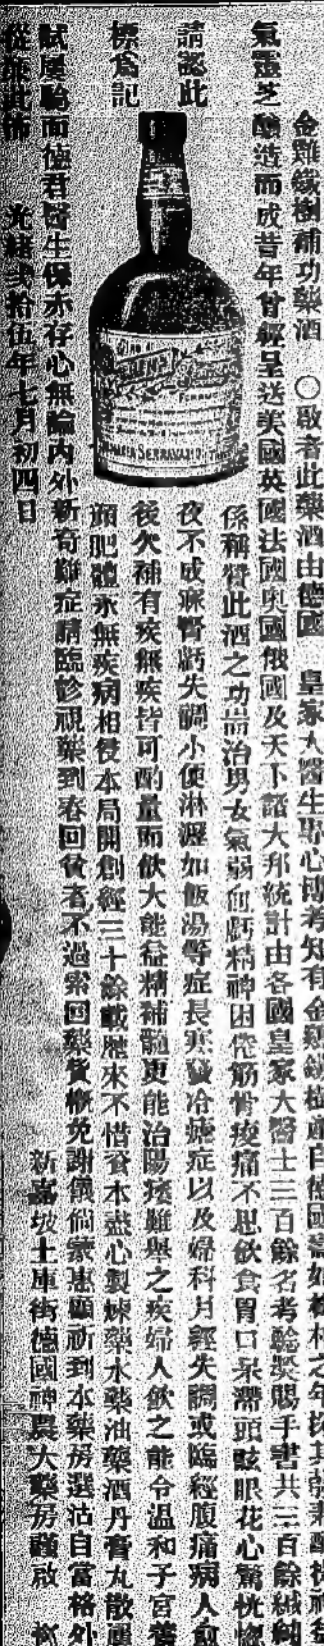 金雞鐵樹補功藥酒　〇啟者此藥酒由德國　皇家大醫生專心博考知有金雞鐵樹產自德國壽如椿
氣靈芝釀造而成昔年曾經呈送美國英國法國奧國俄國及天下諸大邦統計由各國皇家大醫士三百餘名考驗獎賜手書共三百餘緘
請認此
標為記
SERRAVALLO
係稱贊此酒之功耑治男女氣弱血虧精神困倦筋骨痠痛不思飲食胃口呆滯頭眩眼花心驚恍惚
夜不成寐腎虧失調小便淋瀝如飯湯等症長寒發冷瘧症以及婦科月經失調或臨經腹痛病人愈
後欠補有疾無疾皆可酌量而飲大能益精補髓更能治陽痿難舉之疾婦人飲之能令溫和子宮
顏肥體永無疾病相侵本局開創經三十餘載歷來不惜資本盡心製煉藥水藥油藥酒丹膏丸散
試屢驗而德君醫生保赤存心無論內外新奇難症請臨診視藥到春回貧者不過索回藥費概免謝儀倘蒙惠顧祈到本藥房選沽自當格外
從廉此佈　光緒弍拾伍年七月初四日　新嘉坡土庫街德國神農大藥房謹啟